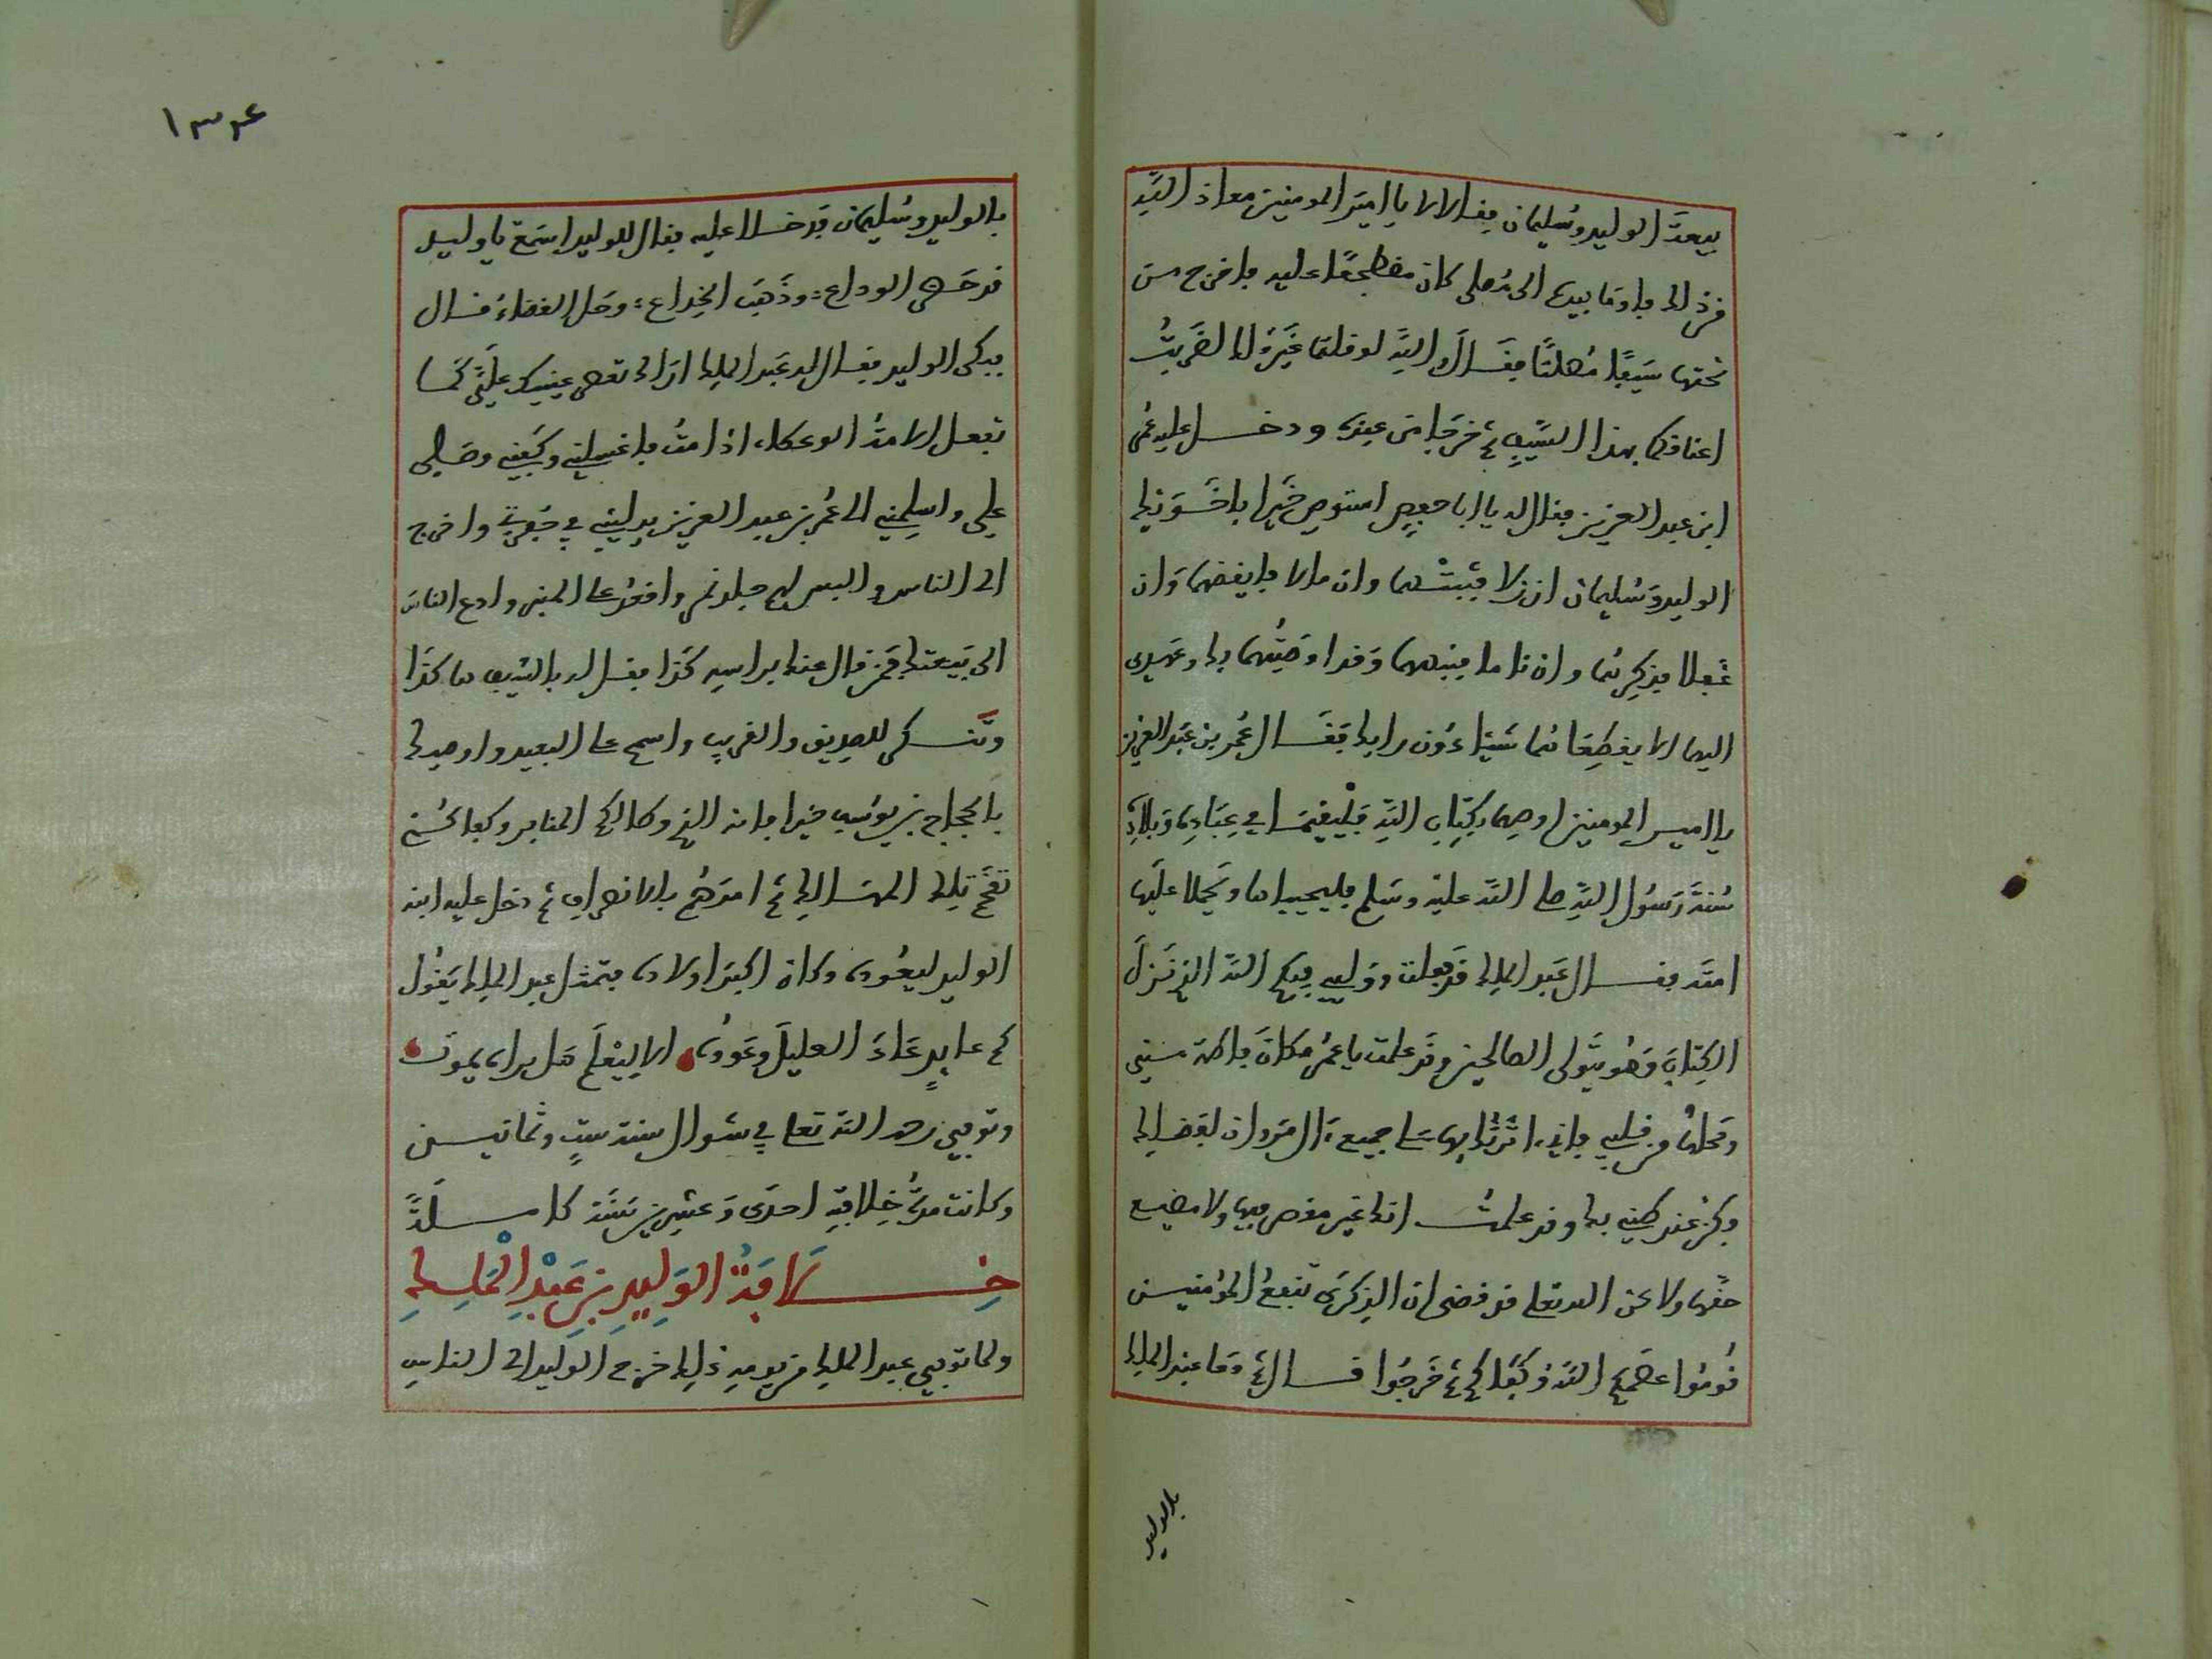 بيعة الوليد وسليمان فقالا لا يا امير المومنين معاذ الله
من ذلك فاوما بيده الى مصلى كان مضطجعا عليه فاخرج من
تحتها سيفا مصلتا فقال والله لو قلتما غير ذلك لضربت
اعناقكما بهذا السيف ثم خرجا من عنده ودخل عليه عمر
ابن عبد العزيز فقال له يا ابا حفص استوص خيرا باخويك
الوليد وسليمان ان زلا فثبتهما وان مالا فاقمهما وان
غفلا فذكرهما وان ناما فنبههما وقد اوصيتهما بك وعهدت
اليهما الا يقطعا شيئا دون رايك فقال عمر بن عبد العزيز
يا امير المومنين اوصهما بكتاب الله فليقيماه في عباده وبلاده
سنة رسول الله صلى الله عليه وسلم فليحيياها ويحملا عليها
امته فقال عبد الملك قد فعلت ووليي فيكم الله الذي نزل
الكتاب وهو يتولى الصالحين وقد علمت يا عمر مكان فاطمة مني
ومحلها من قلبي واني اثرتك بها على جميع ءال مروان لفضلك
فكن عند ظني بك وقد علمت انك غير مقصر فيها ولا مضيع
حقها ولاكن الله تعلى قد قضى ان الذكرى تنفع المؤمنين
قوموا عصمكم الله وكفاكم ثم خرجوا قال ثم دعا عبد الملك
بالوليد
١٣٤
بالوليد وسليمان فدخلا عليه فقال للوليد اسمع يا وليد
قد حضر الوداع؛ وذهب الخداع؛ وحل القضاء قال
فبكى الوليد فقال له عبد الملك اراك تعصر عينيك علي كما
تفعل الامة الوعكاء اذا مت فاغسلني وكفني وصلي
علي واسلمني الى عمر بن عبد العزيز يدليني في حفرتي واخرج
الى الناس والبس لهم جلد نمر واقعد على المنبر وادع الناس
الى بيعتك فمن قال عنك براسه كذا فقل له بالسيف هاكذا
وتنكر للصديق والقريب واسمح على البعيد واوصيك
بالحجاج بن يوسف خيرا فانه الذي وطا لكم المنابر وكفاكم
تقحم تلك المهالك ثم امرهم بالانصراف ثم دخل عليه ابنه
الوليد ليعوده وكان اكبر اولاده فتمثل عبد الملك يقول
كم عايد عاد العليل وعوده الا ليعلم هل يراه يموت
وتوفي رحمه الله تعلى في شوال سنة ست وثمانين
وكانت مدة خلافته احدى وعشرين سنة كاملة
خلافة الوليد بن عبد الملك
ولما توفي عبد الملك من يومه ذلك خرج الوليد الى الناس